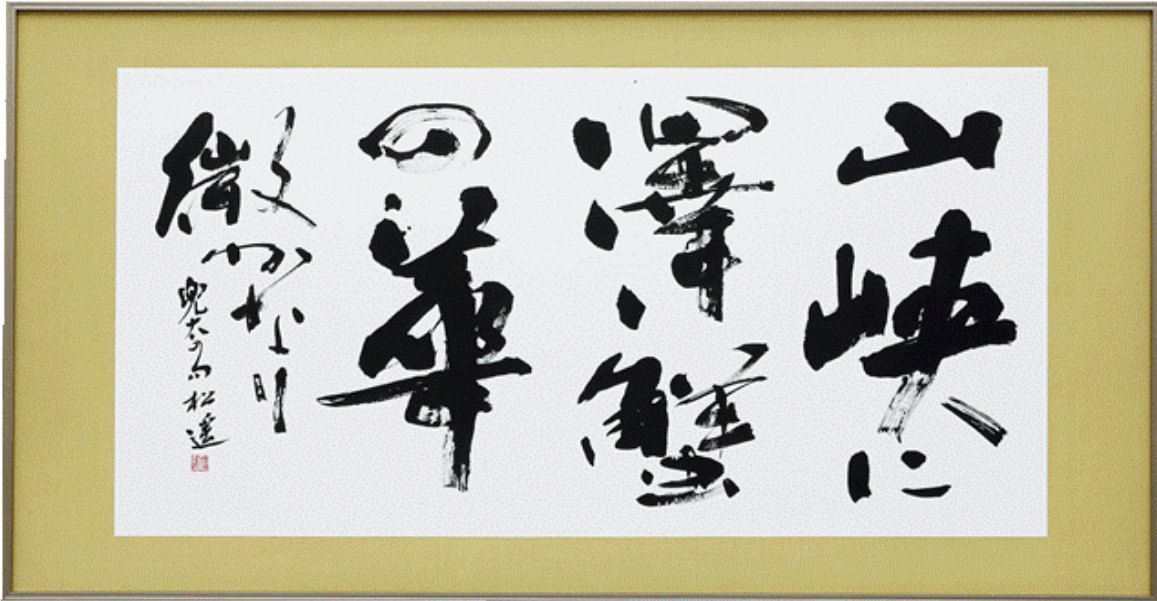 山峡に
澤蟹
の華
微かなり
兜太の句 松遥